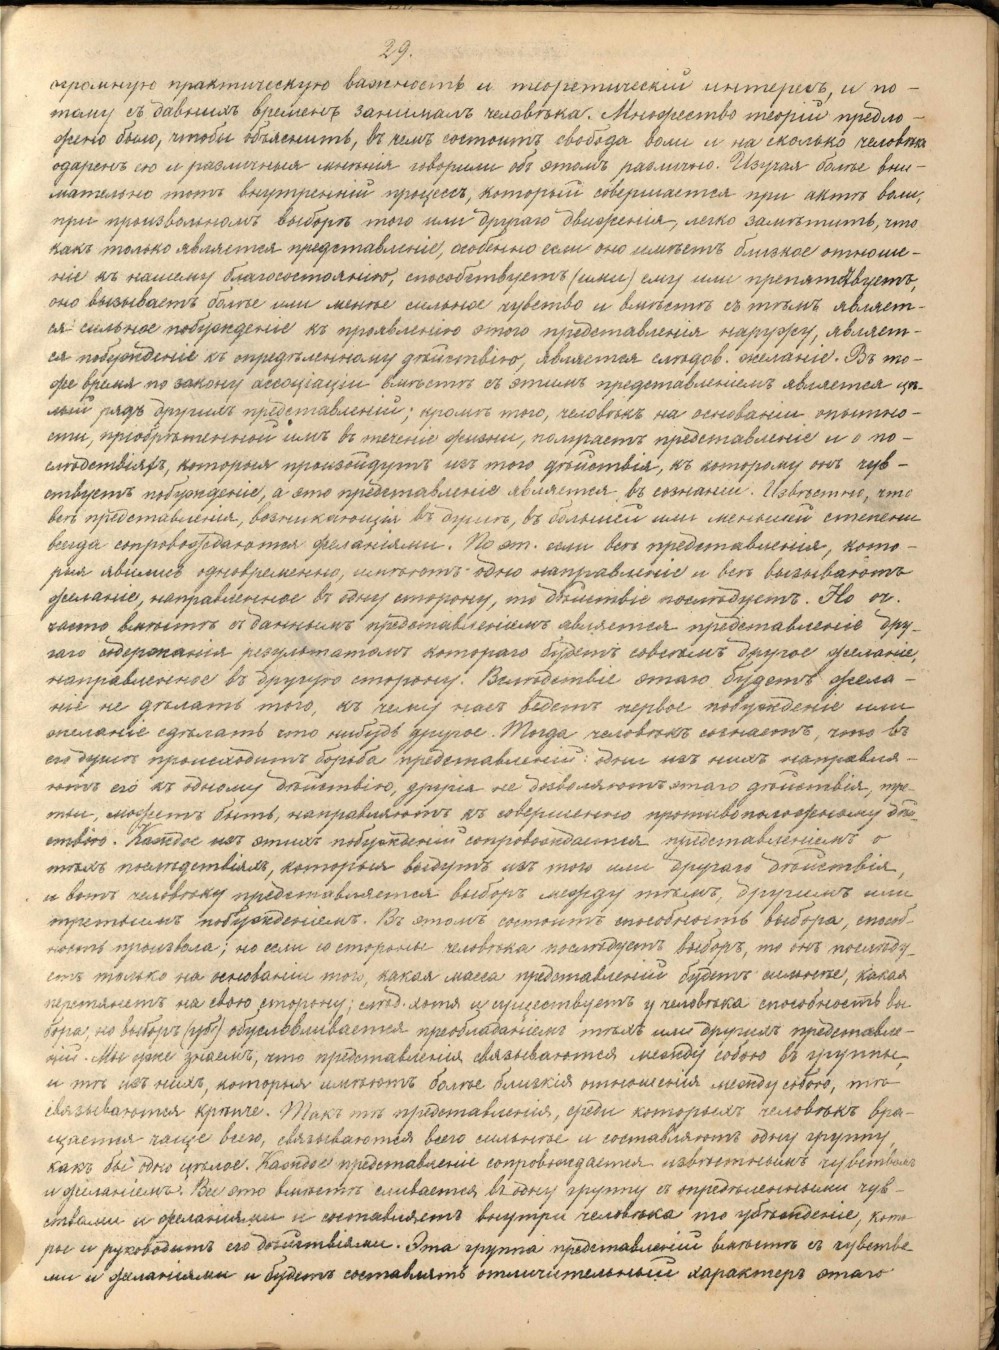 29.
огромную практическую важность и теоретическій интересъ, и по-
тому съ давнихъ временъ занимало человѣка. Множество теорій предло-
жено было, чтобы объяснить, въ чемъ состоитъ свобода воли и на сколько человѣкъ
одаренъ ею и различныя мнѣнія говорили объ этомъ различно. Изучая болѣе вни-
мательно тотъ внутренній процессъ, который совершается при актѣ воли,
при произвольномъ выборѣ того или другаго движенія, легко замѣтить, что
какъ только является представленіе, особенно если оно имѣетъ близкое отноше-
ніе къ нашему благосостоянію, способствуетъ (ли) ему или препятствуетъ,
оно вызываетъ болѣе или менѣе сильное чувство и вмѣстѣ съ тѣмъ являет-
ся сильное побужденіе къ проявленію этого представленія наружу, являет-
ся побужденіе къ опредѣленному дѣйствію, является слѣдов. желаніе. Въ то-
же время по закону ассоціаціи вмѣстѣ съ этимъ представленіемъ является цѣ-
лый рядъ другихъ представленій; кромѣ того, человѣкъ на основаніи опытно-
сти, пріобрѣтенной имъ въ теченіе жизни, получаетъ представленіе и о по-
слѣдствіяхъ, которыя произойдутъ изъ того дѣйствія, къ которому онъ чув-
ствуетъ побужденіе, а это представленіе является въ сознаніи. Извѣстно, что
всѣ представленія, возникающія въ душѣ, въ большей или меньшей степени
всегда сопровождаются желаніями. Поэт. если всѣ представленія, кото-
рыя явились одновременно, имѣютъ одно направленіе и всѣ вызываютъ
желаніе, направленное въ одну сторону, то дѣйствіе послѣдуетъ. Но оч.
часто вмѣстѣ съ даннымъ представленіемъ является представленіе дру-
гаго содержанія результатомъ котораго будетъ совсѣмъ другое желаніе,
направленное въ другую сторону. Вслѣдствіе этаго будетъ жела-
ніе не дѣлать того, къ чему насъ ведетъ первое побужденіе или
желаніе сдѣлать что нибудь другое. Тогда человѣкъ сознаетъ, что въ
его душѣ происходитъ борьба представленій: одни изъ нихъ направля-
ютъ его къ одному дѣйствію, другія не дозволяютъ этаго дѣйствія, тре-
тьи, можетъ быть, направляютъ къ совершенно противоположному дѣй-
ствію. Каждое изъ этихъ побужденій сопровождается представленіемъ о
тѣхъ послѣдствіяхъ, которыя выдутъ изъ того или другаго дѣйствія,
и вотъ человѣку представляется выборъ между тѣмъ, другимъ или
третьимъ побужденіемъ. Въ этомъ состоитъ способность выбора, способ-
ность произвола; но если со стороны человѣка послѣдуетъ выборъ, то онъ послѣду-
етъ только на основаніи того, какая масса представленій будетъ сильнѣе, какая
перетянетъ на свою сторону; слѣд. хотя и существуетъ у человѣка способность вы-
бора, но выборъ обусловливается преобладаніемъ тѣхъ или другихъ представле-
ній. Мы уже знаемъ, что представленія связываются между собою въ группы,
и тѣ изъ нихъ, которыя имѣютъ болѣе близкія отношенія между собою, то
связываются крѣпче. Такъ тѣ представленія, среди которыхъ человѣкъ вра-
щается чаще всего, связываются всего сильнѣе и составляютъ одну группу,
какъ бы одно цѣлое. Каждое представленіе сопровождается извѣстнымъ чувствомъ
и желаніемъ. Все это вмѣстѣ сливается въ одну группу съ опредѣленными чув-
ствами и желаніями и составляетъ внутри человѣка то убѣжденіе, кото-
рые и руководитъ его дѣйствіями. Эта группа представленій вмѣстѣ съ чувства-
ми и желаніями и будетъ составлять отличительный характеръ этаго